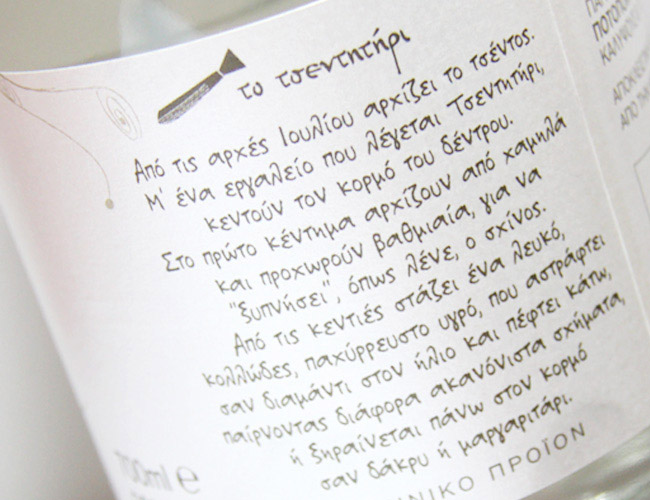 το τσεντητήρι
Από τις αρχές Ιουλίου αρχίζει το τσέντος.
Μ' ένα εργαλείο που λέγεται Τσεντητήρι,
κεντούν τον κορμό του δέντρου.
Στο πρώτο κέντημα αρχίζουν από χαμηλά
και προχωρούν βαθμιαία, για να
"ξυπνήσει", όπως λένε, ο σχίνος.
Από τις κεντιές στάζει ένα λευκό,
κολλώδες, παχύρρευστο υγρό, που αστράφτει
σαν διαμάντι στον ήλιο και πέφτει κάτω,
παίρνοντας διάφορα ακανόνιστα σχήματα,
ή ξηραίνεται πάνω στον κορμό
σαν δάκρυ ή μαργαριτάρι.
700ml e
ΝΙΚΟ ΠΡΟΪΟΝ